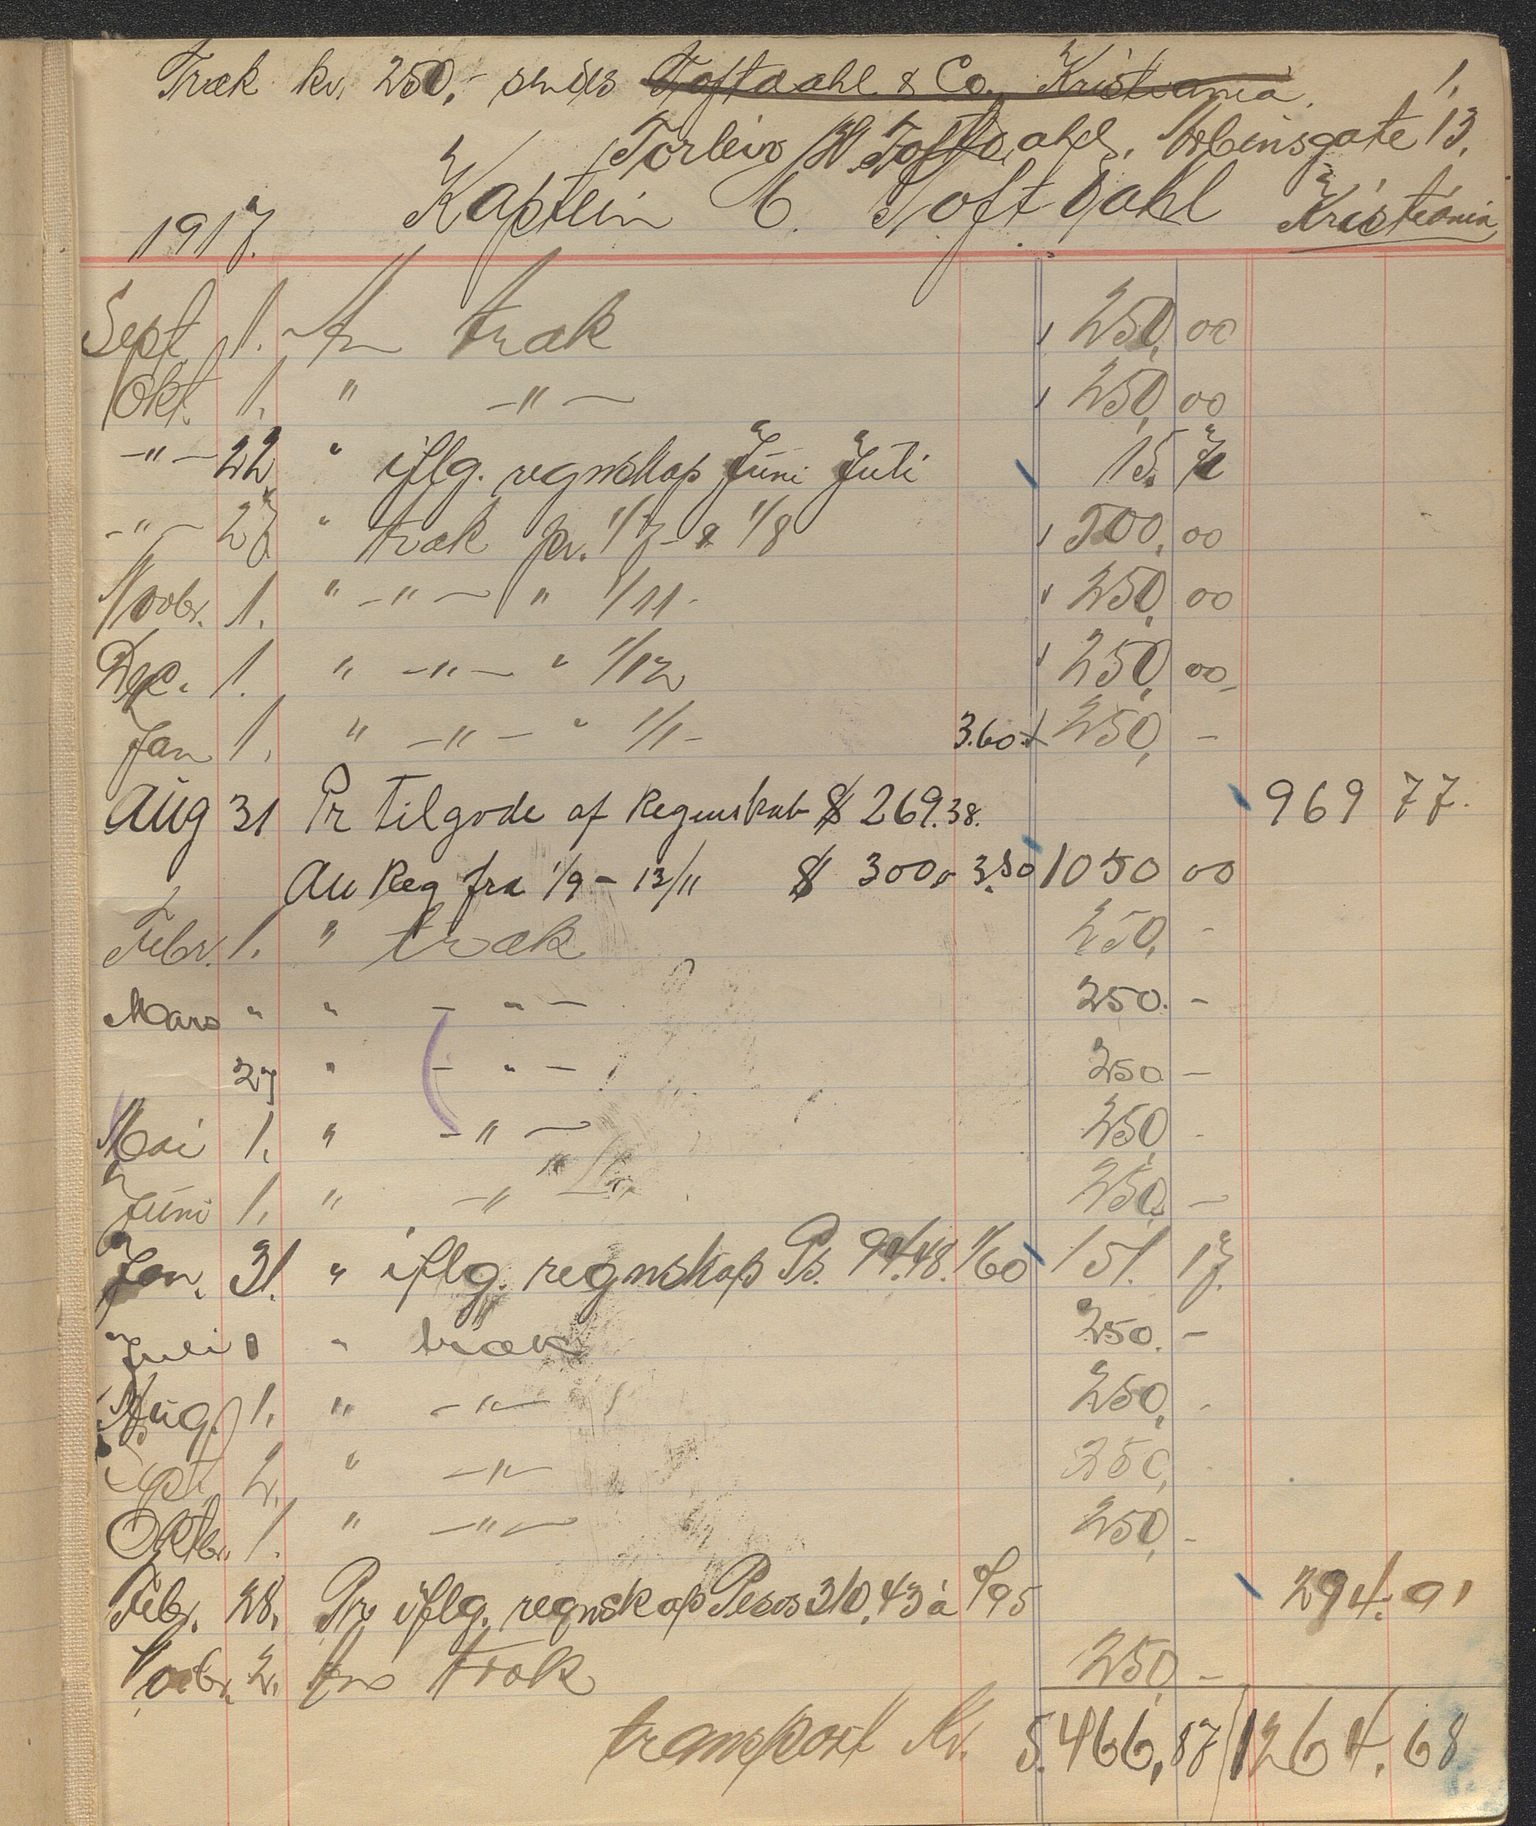 Træk kr. 250,- sendes Toftdahl & Co. Kristiania.
Torleiv M. Toftdahl, Urbinsgate 13.
1917. Kaptein C. Toftdahl Kristiania
Sept. 1. An træk 250,00
Okt. 1. " -"- 250,00
-"- 22 " iflg. regnskap Juni Juli 15.70
-"- 27 " træk pr. 1/7 - & 1/8 500,00
Novbr. 1. " -"- " 1/11- 250,00
Dec. 1. " -"- " 1/12 250,00
Jan 1. " -"- " 1/1- 3.60 250,-
Aug 31 Pr Tilgode af Regnskab $ 269.38. 969 77.
An Reg fra 1/9 - 13/11 $ 300,- 3.50 1050 00
Febr. 1. " træk 250,-
Mars " " -"- 250.-
27 " -"- 250-
Mai 1. " -"- 250,-
Juni 1. " -"- 250,-
Jan. 31. " iflg. regnskap Ps. 94.48. 1/60 151.17.
Juli 1 " træk 250.-
Aug. 1. " -"- 250,-
Sept. 2. " -"- 250,-
Oktbr. 1. " -"- 250,-
Febr. 28. Pr iflg. regnskap Pesos 310,43 à 0/95 294.91
Novbr. 2. An træk 250,-
transport Kr. 5.466,87 1264.68